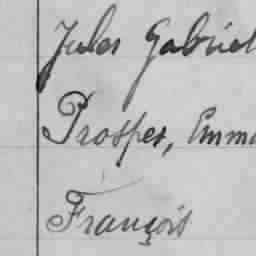 Jules Gabriel
Prosper, Emma
François